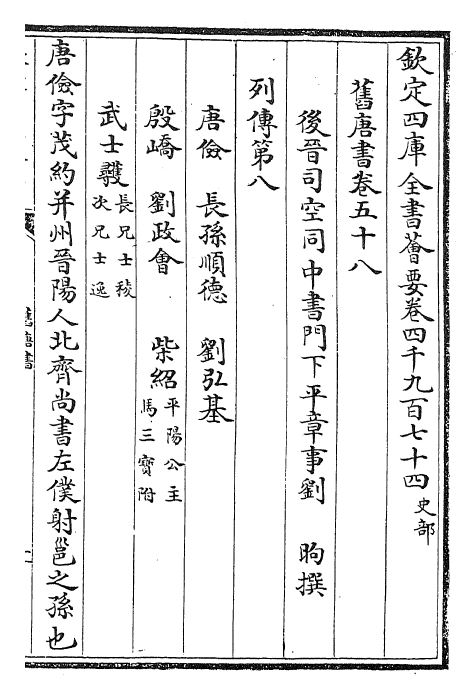 欽定四庫全書薈要卷四千九百七十四 史部
舊唐書卷五十八
後晉司空同中書門下平章事劉 昫撰
列傳第八
唐儉 長孫順德 劉弘基
殷嶠 劉政會 柴紹 平陽公主 馬三寶附
武士彠 長兄士稜 次兄士逸
唐儉字茂約并州晉陽人北齊尚書左僕射邕之孫也
舊唐書